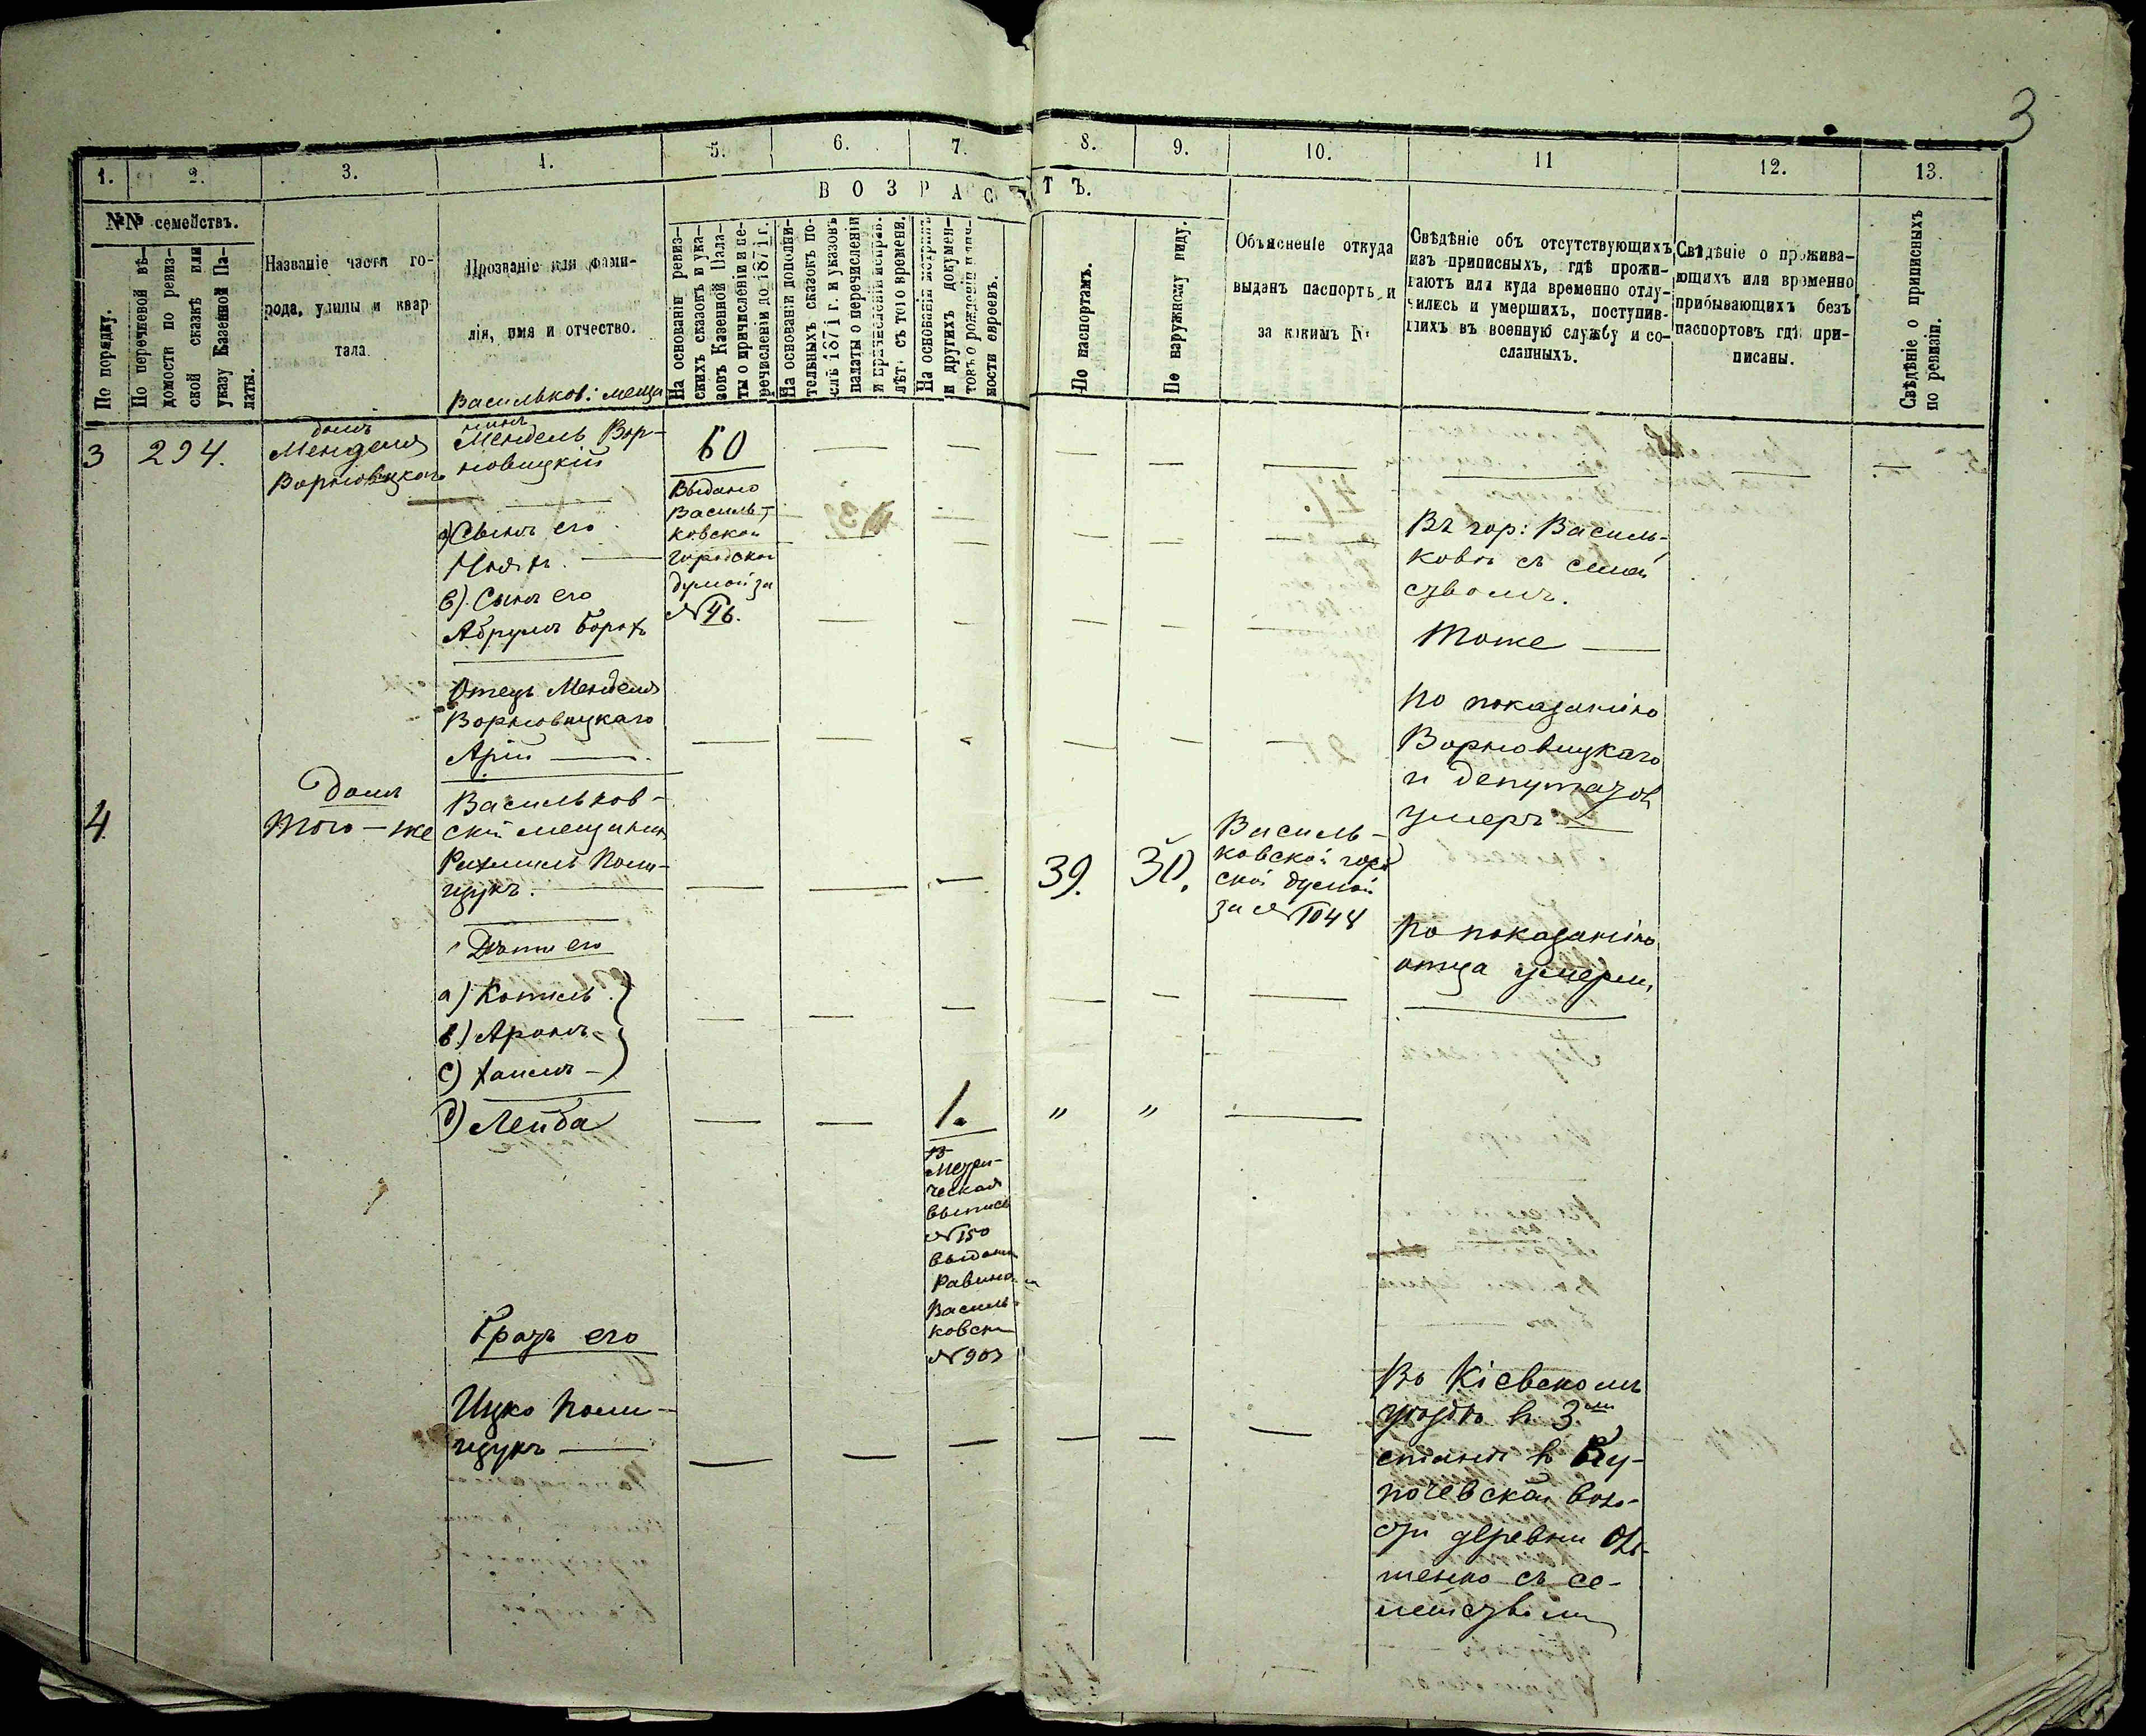 3
1.
2.
3.
4.
5.
6.
7.
8.
9.
10.
11
12.
13.
ВОЗРАСТЪ.
№№ семействъ.
По порядку.
По перечневой вѣ-
домости по ревиз-
ской сказкѣ или
указу Казенной Па-
латы.
Названіе части го-
рода, улицы и квар
тала
Прозваніе или фами-
лія, имя и отчество.
На основаніи ревиз-
скихъ сказокъ и ука-
зовъ Казенной Пала-
ты о причисленіи и пе-
речисленіи до 1871 г.
На основаніи дополни-
тельныхъ сказокъ по-
слѣ 1871 г. и указовъ
палаты о перечисленіи
и причисленіи исправ.
лѣт. съ того времени.
На основаніи метрик
и другихъ докумен-
товъ о рожденіи и лич-
ности евреевъ.
По паспортамъ.
По наружному виду.
Объясненіе откуда
выданъ паспортъ и
за какимъ №
Свѣдѣніе объ отсутствующихъ
изъ приписныхъ, гдѣ прожи-
ваютъ или куда временно отлу-
чились и умершихъ, поступив-
шихъ въ военную службу и со-
сланныхъ.
Свѣдѣніе о прожива-
ющихъ или временно
прибывающихъ безъ
паспортовъ гдѣ при-
писаны.
Свѣдѣніе о приписныхъ
по ревизіи.
3
294.
домъ
Менделя
Ворновицкого
Васильков: меща
нинъ
Мендель Вор-
новицкій
60
Выдано
Василь-
ковской
городской
думой за
№ 46.
а) Сынъ его
в) Сынъ его
Абрумъ Борохъ
Въ гор: Василь-
ковѣ съ семей
ствомъ.
Тоже
Отецъ Менделя
Ворновицкаго
Арій
По показанію
Ворновицкаго
и депутатов
умеръ
4.
Домъ
того-же
Васильков-
скій мещанин
Рахмиль Поли-
щукъ.
39.
30.
Василь-
ковской город
ской думой
за № 1044
Дѣти его
а) Котель
в) Аронъ
с) Хаимъ
По показанію
отца умерли,
d) Лейба
1.
"
"
Метри-
ческая
выпись
№ 150
выдана
Равином
Василь-
ковским
№ 903
Братъ его
Ицко Поли-
щукъ
Въ Кіевскомъ
уѣздѣ в 3мъ
станѣ в
почевской воло-
сти деревни
съ се-
мействомъ